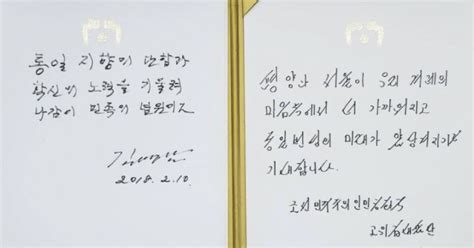 통일 지향의 단합과
확신의 노력을 기울려
나감이 민족의 념원이죠
김영남
2018. 2. 10.
평양과 서울이 우리 겨레의
마음속에서 더 가까워지고
통일번영의 미래가 앞당겨지기를
기대합니다.
조선민주주의인민공화국
고위급대표단